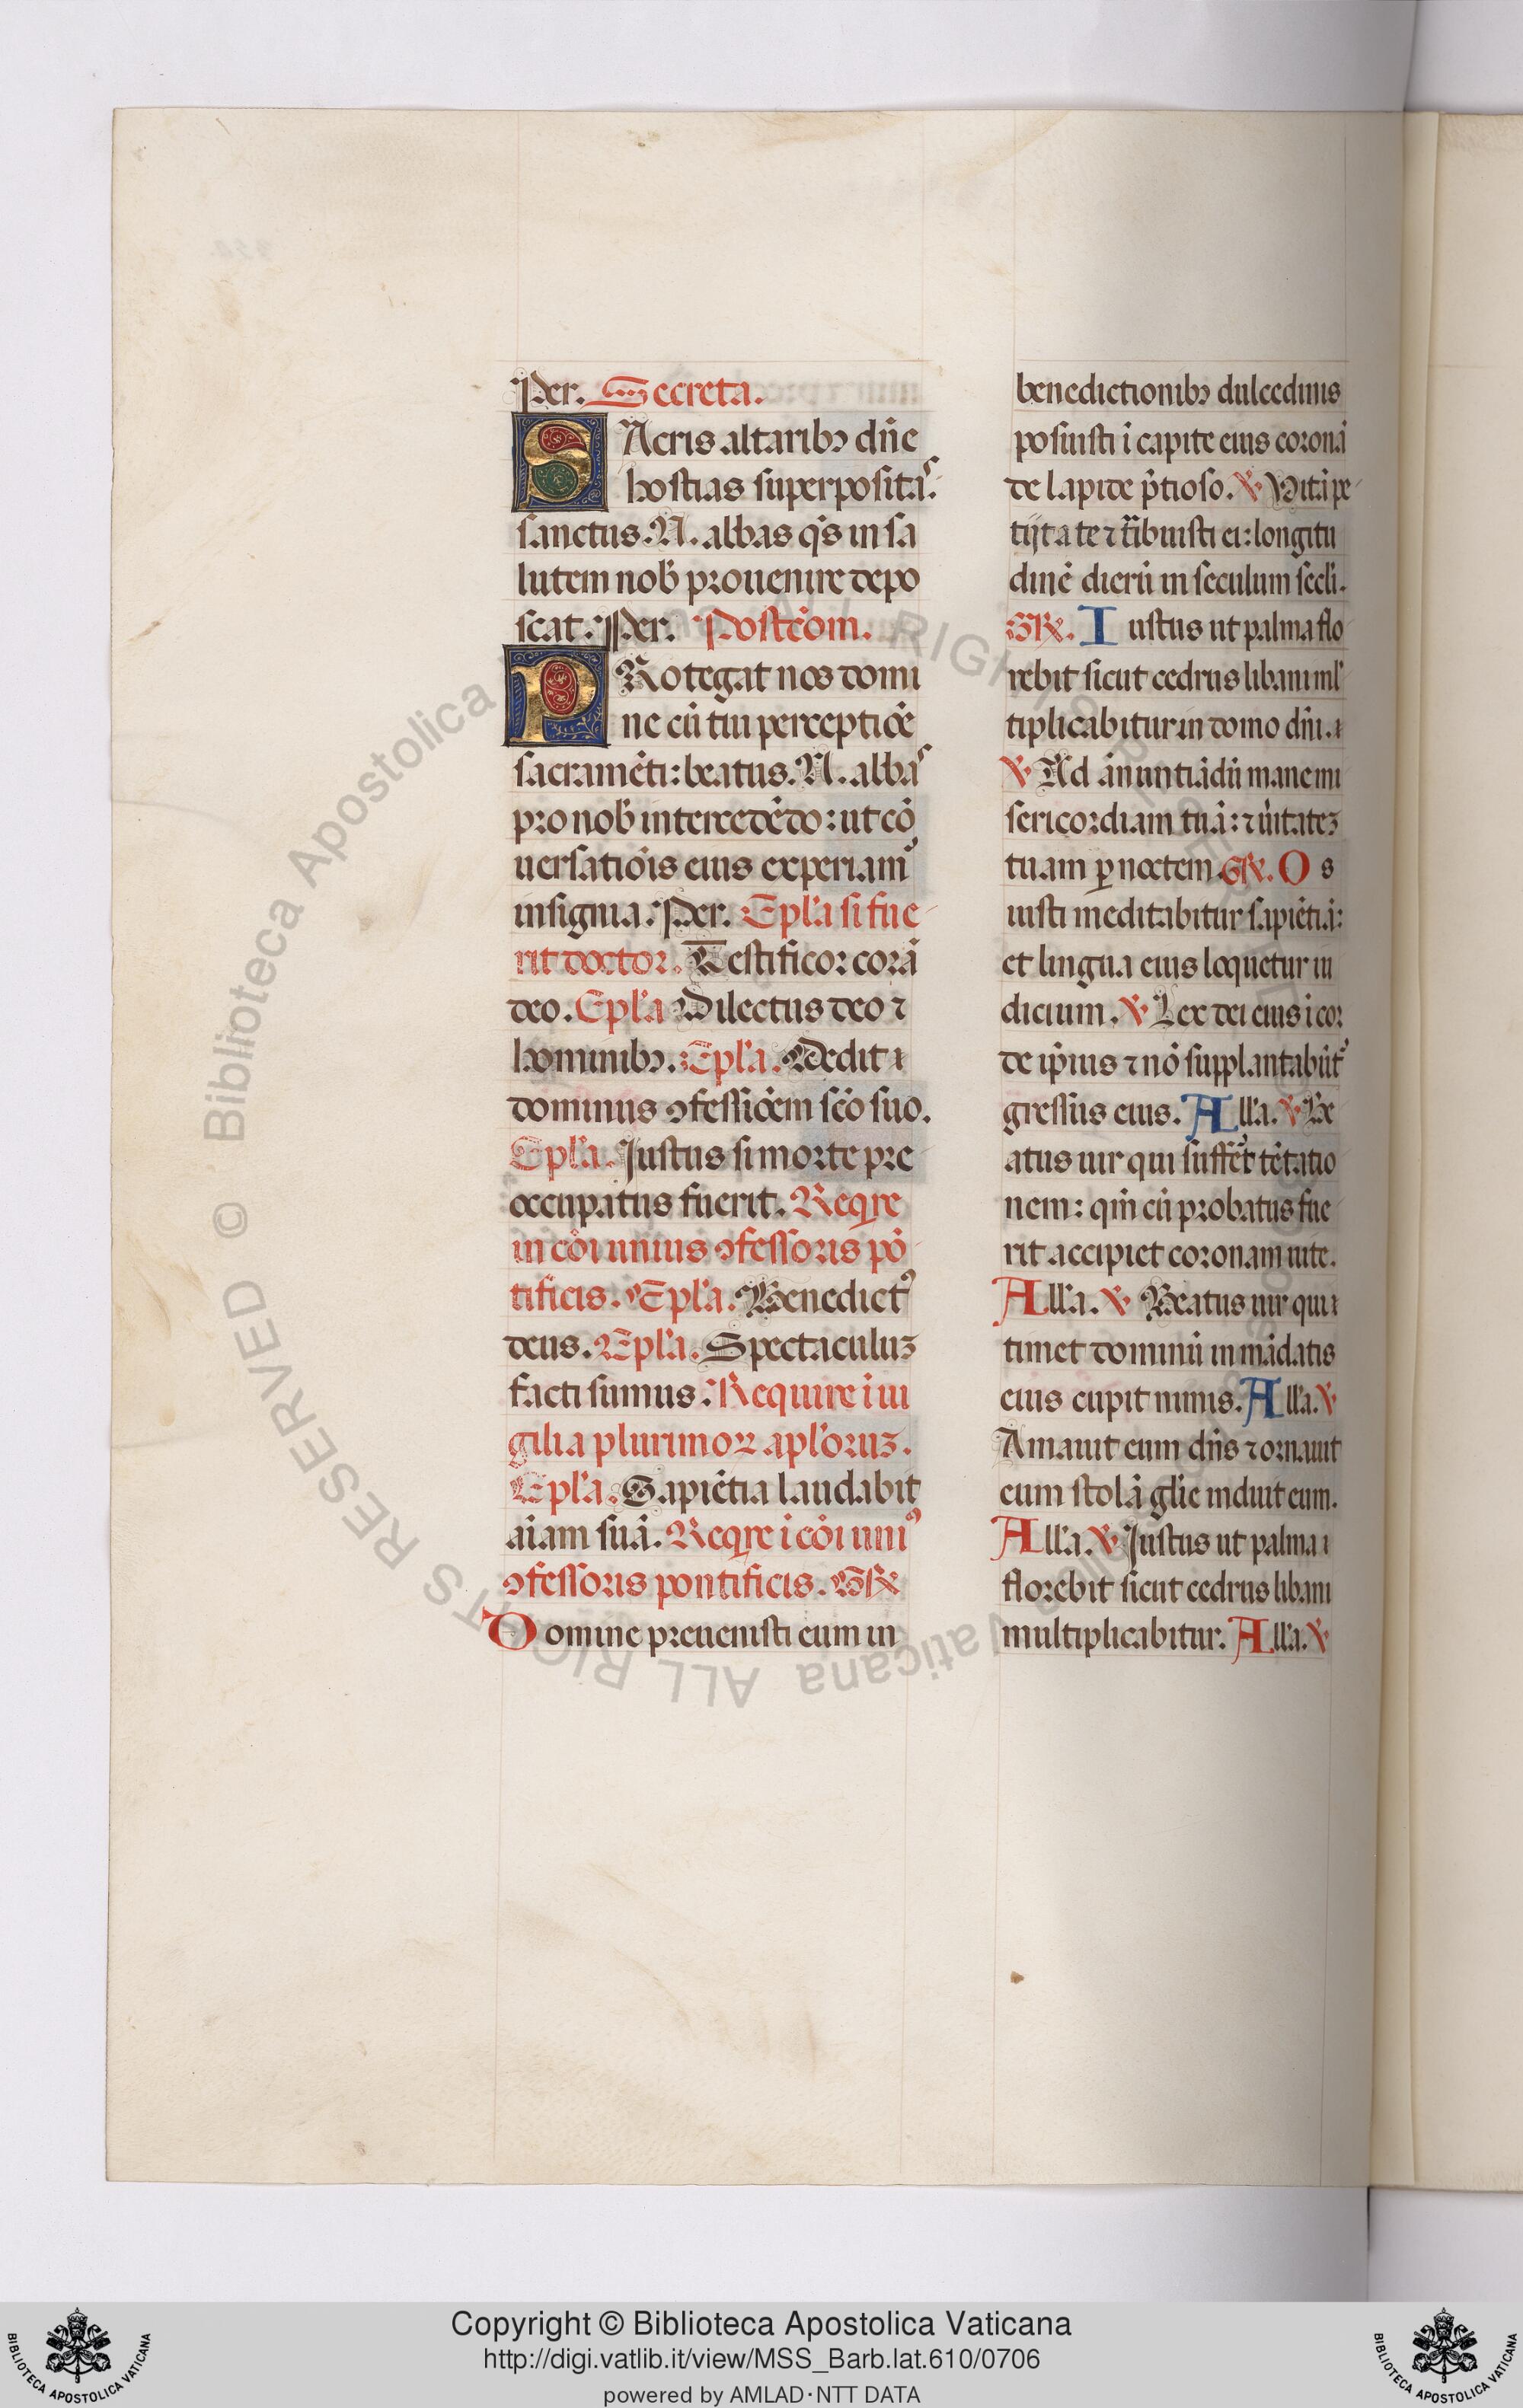 Per. Secreta.
SAcris altaribꝰ dñe
hostias superpositas
sanctus .N. abbas qs̃ in sa
lutem nob̃ prouenire depo
scat. Per. Postcõm.
PRotegat nos domi
ne cũ tui perceptiõe
sacramẽti: beatus .N. abbas
pro nob̃ intercedẽdo: ut cõ
uersatiõis eius experiamꝰ
insignia. Per. Epl̃a si fue
rit doctor. Testificor corã
deo. Epl̃a Dilectus deo ⁊
hominibꝰ. Epl̃a. Dedit
dominus ꝯfessiõem scõ suo.
Epl̃a. Justus si morte pre
occupatus fuerit. Reqr̃e
in cõi unius ꝯfessoris põ
tificis. Epl̃a. Benedictꝰ
deus. Epl̃a. Spectaculuꝫ
facti sumus. Require i ui
gilia plurimoꝝ apl̃oruꝫ.
Epl̃a. Sapiẽtia laudabit
aĩam suã. Reqr̃e i cõi uniꝰ
ꝯfessoris pontificis. GR̃
Domine preuenisti eum in
benedictionibꝰ dulcedinis
posuisti ĩ capite eius coronã
de lapide p̃tioso. ℣ Vitã pe
tijt a te ⁊ tribuisti ei: longitu
dinẽ dierũ in seculum secl̃i.
GR̃. Iustus ut palma flo
rebit sicut cedrus libani ml̃
tiplicabitur in domo dñi.
℣ Ad ãnuntiãdũ mane mi
sericordiam tuã: ⁊ ũitateꝫ
tuam ꝑ noctem. GR̃. Os
iusti meditabitur sapiẽtiã:
et lingua eius loquetur iu
dicium. ℣ Lex dei eius i cor
de ip̃ius ⁊ nõ supplantabũt᷑
gressus eius. All̃a. ℣ Be
atus uir qui suffert tẽtatio
nem: qm̃ cũ probatus fue
rit accipiet coronam uite.
All̃a. ℣ Beatus uir qui
timet dominũ in mãdatis
eius cupit nimis. All̃a. ℣
Amauit eum dñs ⁊ ornauit
eum stolã glĩe induit eum.
All̃a. ℣ Justus ut palma
florebit sicut cedrus libani
multiplicabitur. All̃a. ℣
© Biblioteca Apostolica Vaticana ALL RIGHTS RESERVED
Copyright © Biblioteca Apostolica Vaticana
http://digi.vatlib.it/view/MSS_Barb.lat.610/0706
powered by AMLAD·NTT DATA
BIBLIOTECA APOSTOLICA VATICANA
BIBLIOTECA APOSTOLICA VATICANA